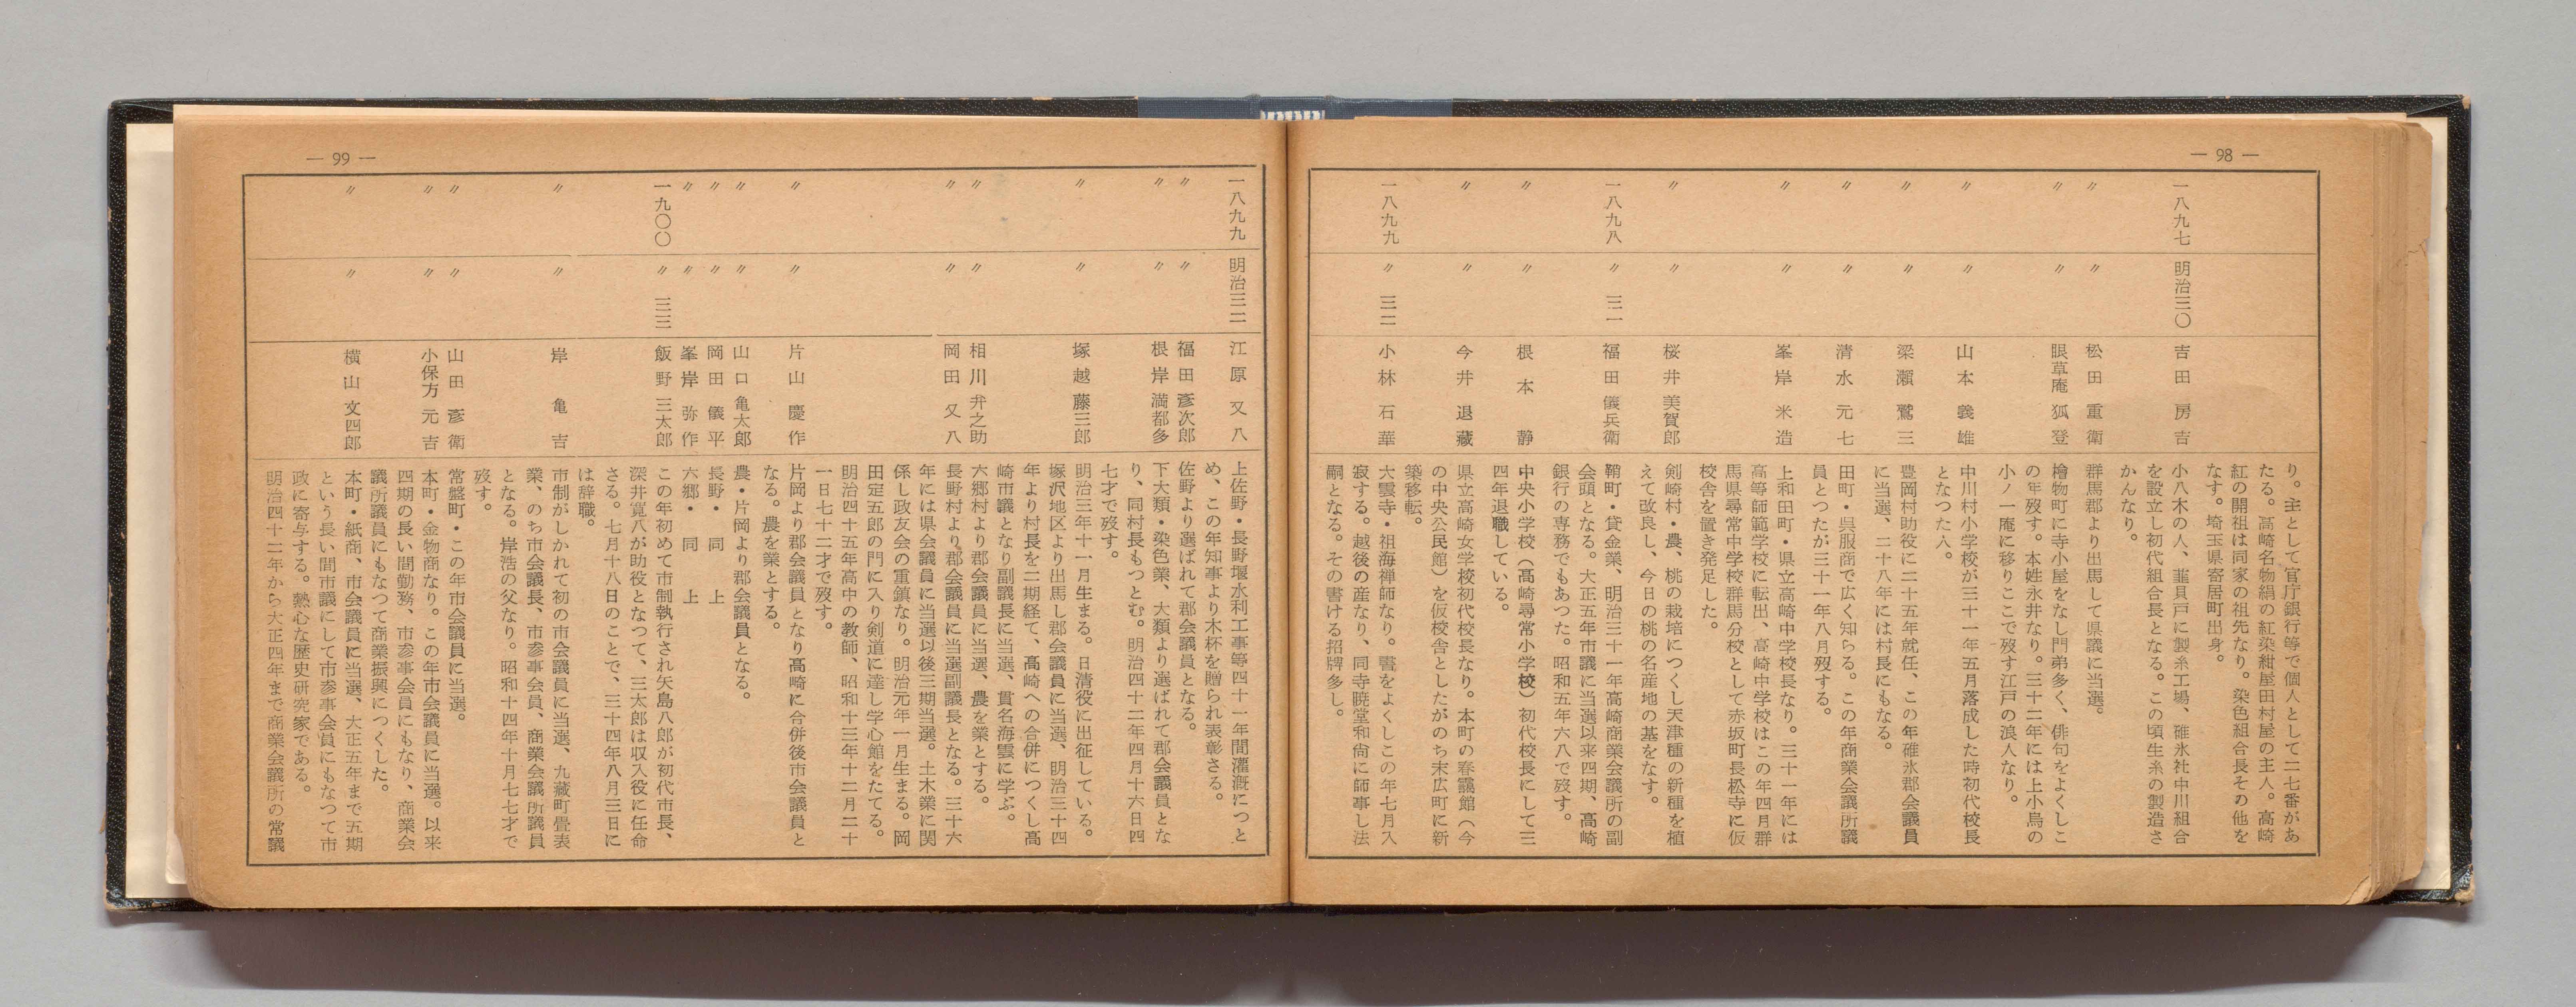 — 98 —
り。主として官庁銀行等で個人として二七番があ
たる。高崎名物絹の紅染紺屋田村屋の主人。高崎
紅の開祖は同家の祖先なり。染色組合長その他を
なす。埼玉県寄居町出身。
一八九七 明治三〇 吉田房吉 小八木の人、韮貝戸に製糸工場、碓氷社中川組合
を設立し初代組合長となる。この頃生糸の製造さ
かんなり。
〃 〃 松田重衛 群馬郡より出馬して県議に当選。
〃 〃 眼草庵狐登 檜物町に寺小屋をなし門弟多く、俳句をよくしこ
の年歿す。本姓永井なり。三十二年には上小鳥の
小ノ一庵に移りここで歿す江戸の浪人なり。
〃 〃 山本義雄 中川村小学校が三十一年五月落成した時初代校長
となつた人。
〃 〃 梁瀬鷲三 豊岡村助役に二十五年就任、この年碓氷郡会議員
に当選、二十八年には村長にもなる。
〃 〃 清水元七 田町・呉服商で広く知らる。この年商業会議所議
員とつたが三十一年八月歿する。
〃 〃 峯岸米造 上和田町・県立高崎中学校長なり。三十一年には
高等師範学校に転出、高崎中学校はこの年四月群
馬県尋常中学校群馬分校として赤坂町長松寺に仮
校舎を置き発足した。
〃 〃 桜井美賀郎 剣崎村・農、桃の栽培につくし天津種の新種を植
えて改良し、今日の桃の名産地の基をなす。
一八九八 〃 三一 福田儀兵衛 鞘町・貸金業、明治三十一年高崎商業会議所の副
会頭となる。大正五年市議に当選以来四期、高崎
銀行の専務でもあつた。昭和五年六八で歿す。
〃 〃 根本静 中央小学校（高崎尋常小学校）初代校長にして三
四年退職している。
〃 〃 今井退蔵 県立高崎女学校初代校長なり。本町の春靄館（今
の中央公民館）を仮校舎としたがのち末広町に新
築移転。
一八九九 〃 三二 小林石華 大雲寺・祖海禅師なり。書をよくしこの年七月入
寂する。越後の産なり、同寺暁堂和尚に師事し法
嗣となる。その書ける招牌多し。
— 99 —
一八九九 明治三二 江原又八 上佐野・長野堰水利工事等四十一年間灌漑につと
め、この年知事より木杯を贈られ表彰さる。
〃 〃 福田彦次郎 佐野より選ばれて郡会議員となる。
〃 〃 根岸満都多 下大類・染色業、大類より選ばれて郡会議員とな
り、同村長もつとむ。明治四十二年四月十六日四
七才で歿す。
〃 〃 塚越藤三郎 明治三年十一月生まる。日清役に出征している。
塚沢地区より出馬し郡会議員に当選、明治三十四
年より村長を二期経て、高崎への合併につくし高
崎市議となり副議長に当選、貫名海雲に学ぶ。
〃 〃 相川弁之助 六郷村より郡会議員に当選、農を業とする。
〃 〃 岡田又八 長野村より郡会議員に当選副議長となる。三十六
年には県会議員に当選以後三期当選。土木業に関
係し政友会の重鎮なり。明治元年一月生まる。岡
田定五郎の門に入り剣道に達し学心館をたてる。
明治四十五年高中の教師、昭和十三年十二月二十
一日七十二才で歿す。
〃 〃 片山慶作 片岡より郡会議員となり高崎に合併後市会議員と
なる。農を業とする。
〃 〃 山口亀太郎 農・片岡より郡会議員となる。
〃 〃 岡田儀平 長野・同上
〃 〃 峯岸弥作 六郷・同上
一九〇〇 〃 三三 飯野三太郎 この年初めて市制執行され矢島八郎が初代市長、
深井寛八が助役となつて、三太郎は収入役に任命
さる。七月十八日のことで、三十四年八月三日に
は辞職。
〃 〃 岸亀吉 市制がしかれて初の市会議員に当選、九蔵町畳表
業、のち市会議長、市参事会員、商業会議所議員
となる。岸浩の父なり。昭和十四年十月七七才で
歿す。
〃 〃 山田彦衛 常盤町・この年市会議員に当選。
〃 〃 小保方元吉 本町・金物商なり。この年市会議員に当選。以来
四期の長い間勤務、市参事会員にもなり、商業会
議所議員にもなつて商業振興につくした。
〃 〃 横山文四郎 本町・紙商、市会議員に当選、大正五年まで五期
という長い間市議にして市参事会員にもなつて市
政に寄与する。熱心な歴史研究家である。
明治四十二年から大正四年まで商業会議所の常議